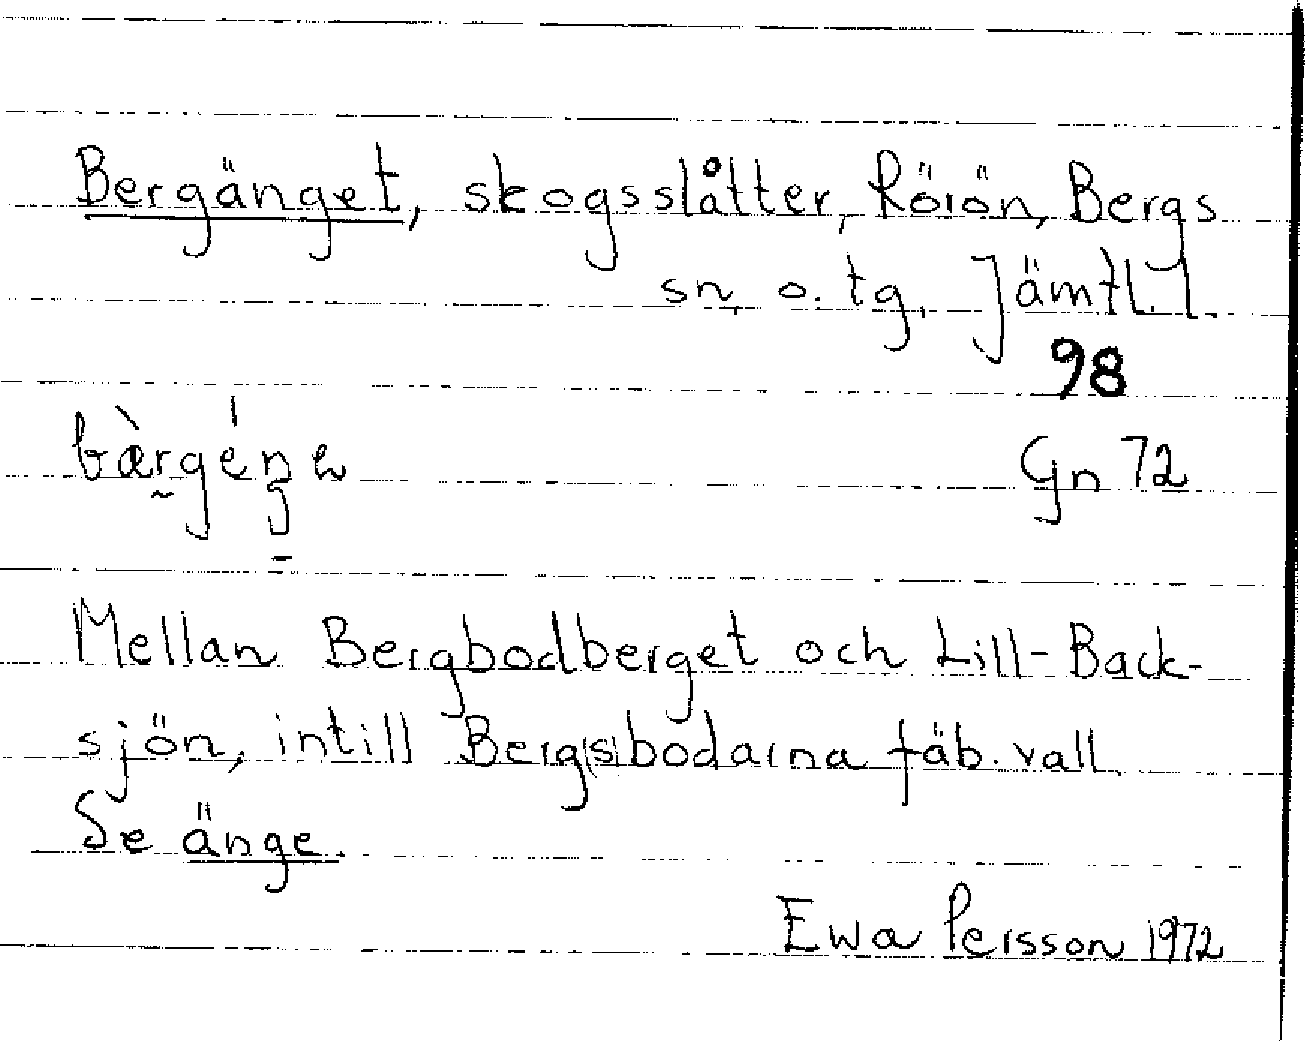 Bergänget, skogsslåtter, Rörön, Bergs
sn. o. tg. Jämtl. l.
98
Gn 72
Mellan Bergbodberget och Lill-Back-
sjön, intill Berg(s)bodarna fäb.vall
Se änge.
Ewa Persson 1972